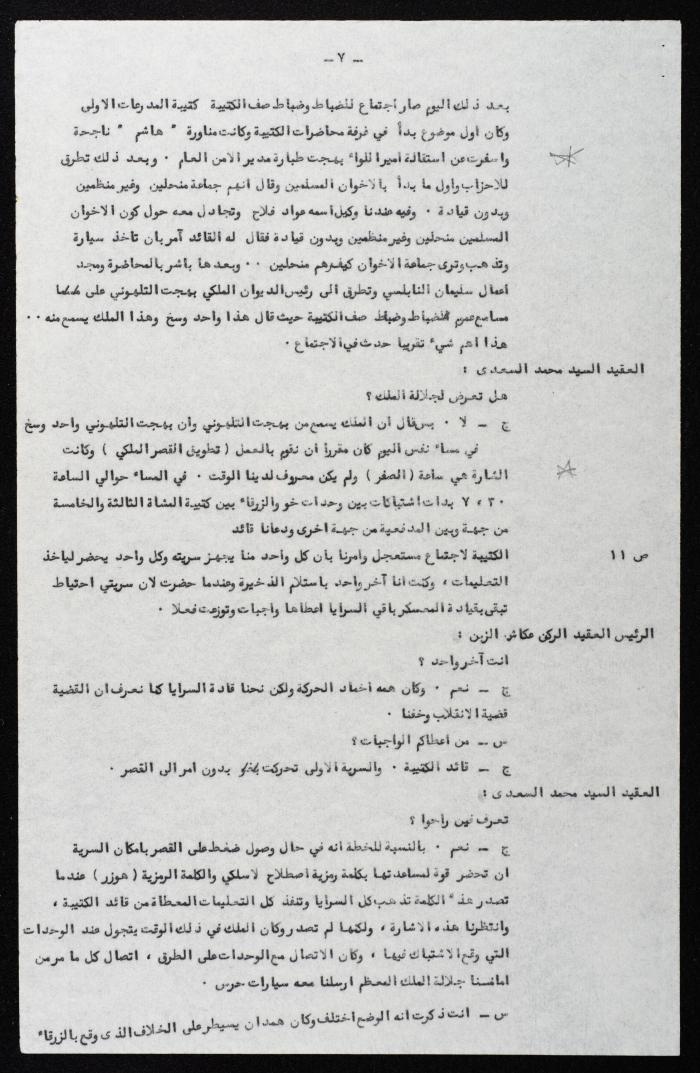 ـ ٧ ـ
بعد ذلك اليوم صار اجتماع للضباط وضباط صف الكتيبة كتيبة المدرعات الاولى
وكان اول موضوع بدأ في غرفة محاضرات الكتيبة وكانت مناورة " هاشم " ناجحة
واسفرت عن استقالة امير اللواء بهجت طبارة مدير الامن العام . وبعد ذلك تطرق
للاحزاب واول ما بدأ بالاخوان المسلمين وقال انهم جماعة منحلين وغير منظمين
وبدون قيادة . وفيه عندنا وكيل اسمه عواد فلاح وتجادل معه حول كون الاخوان
المسلمين منحلين وغير منظمين وبدون قيادة فقال له القائد آمر بان تاخذ سيارة
وتذهب وترى جماعة الاخوان كيفهم منحلين .. وبعدها باشر بالمحاضرة ومجد
اعمال سليمان النابلسي وتطرق الى رئيس الديوان الملكي بهجت التلهوني على
مسامع عموم الضباط وضباط صف الكتيبة حيث قال هذا واحد وسخ وهذا الملك يسمع منه ..
هذا اهم شيء تقريبا حدث في الاجتماع .
العقيد السيد محمد السعدى :
هل تعرض لجلالة الملك ؟
ج ـ لا . بس قال ان الملك يسمع من بهجت التلهوني وان بهجت التلهوني واحد وسخ
في مساء نفس اليوم كان مقررا ان نقوم بالعمل ( تطويق القصر الملكي ) وكانت
الشارة هي ساعة ( الصفر ) ولم يكن معروف لدينا الوقت . في المساء حوالي الساعة
٧،٣٠ بدات اشتباكات بين وحدات خو والزرقاء بين كتيبة المشاة الثالثة والخامسة
من جهة وبين المدفعية من جهة اخرى ودعانا قائد
الكتيبة لاجتماع مستعجل وامرنا بان كل واحد منا يجهز سريته وكل واحد يحضر لياخذ ص ١١
التعليمات ، وكنت انا آخر واحد باستلام الذخيرة وعندما حضرت لان سريتي احتياط
تبقى بقيادة المعسكر باقي السرايا اعطاها واجبات وتوزعت فعلا .
الرئيس العقيد الركن عكاش الزبن :
انت آخر واحد ؟
ج ـ نعم . وكان همه اخماد الحركة ولكن نحنا قادة السرايا كنا نعرف ان القضية
قضية الانقلاب وخفنا .
س ـ من اعطاكم الواجبات ؟
ج ـ قائد الكتيبة . والسرية الاولى تحركت بدون امر الى القصر .
العقيد السيد محمد السعدى :
تعرف فين راحوا ؟
ج ـ نعم . بالنسبة للخطة انه في حال وصول ضغط على القصر بامكان السرية
ان تحضر قوة لمساعدتها بكلمة رمزية اصطلاح لاسلكي والكلمة الرمزية ( هوزر ) عندما
تصدر هذه الكلمة تذهب كل السرايا وتنفذ كل التعليمات المعطاة من قائد الكتيبة ،
وانتظرنا هذه الاشارة ، ولكنها لم تصدر وكان الملك في ذلك الوقت يتجول عند الوحدات
التي وقع الاشتباك فيها ، وكان الاتصال مع الوحدات على الطرق ، اتصال كل ما مر من
امامنا جلالة الملك المعظم ارسلنا معه سيارات حرس .
س ـ انت ذكرت انه الوضع اختلف وكان همدان يسيطر على الخلاف الذى وقع بالزرقاء